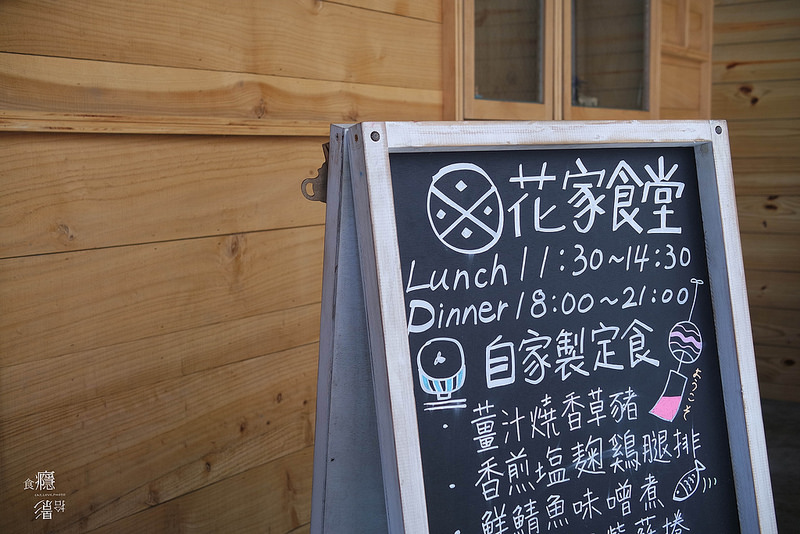 花家食堂
Lunch 11:30~14:30
Dinner 18:00~21:00
自家製定食
ようこそ
・薑汁燒香草豬
・香煎塩麹鷄腿排
・鮮鯖魚味噌煮
食癮
拾著